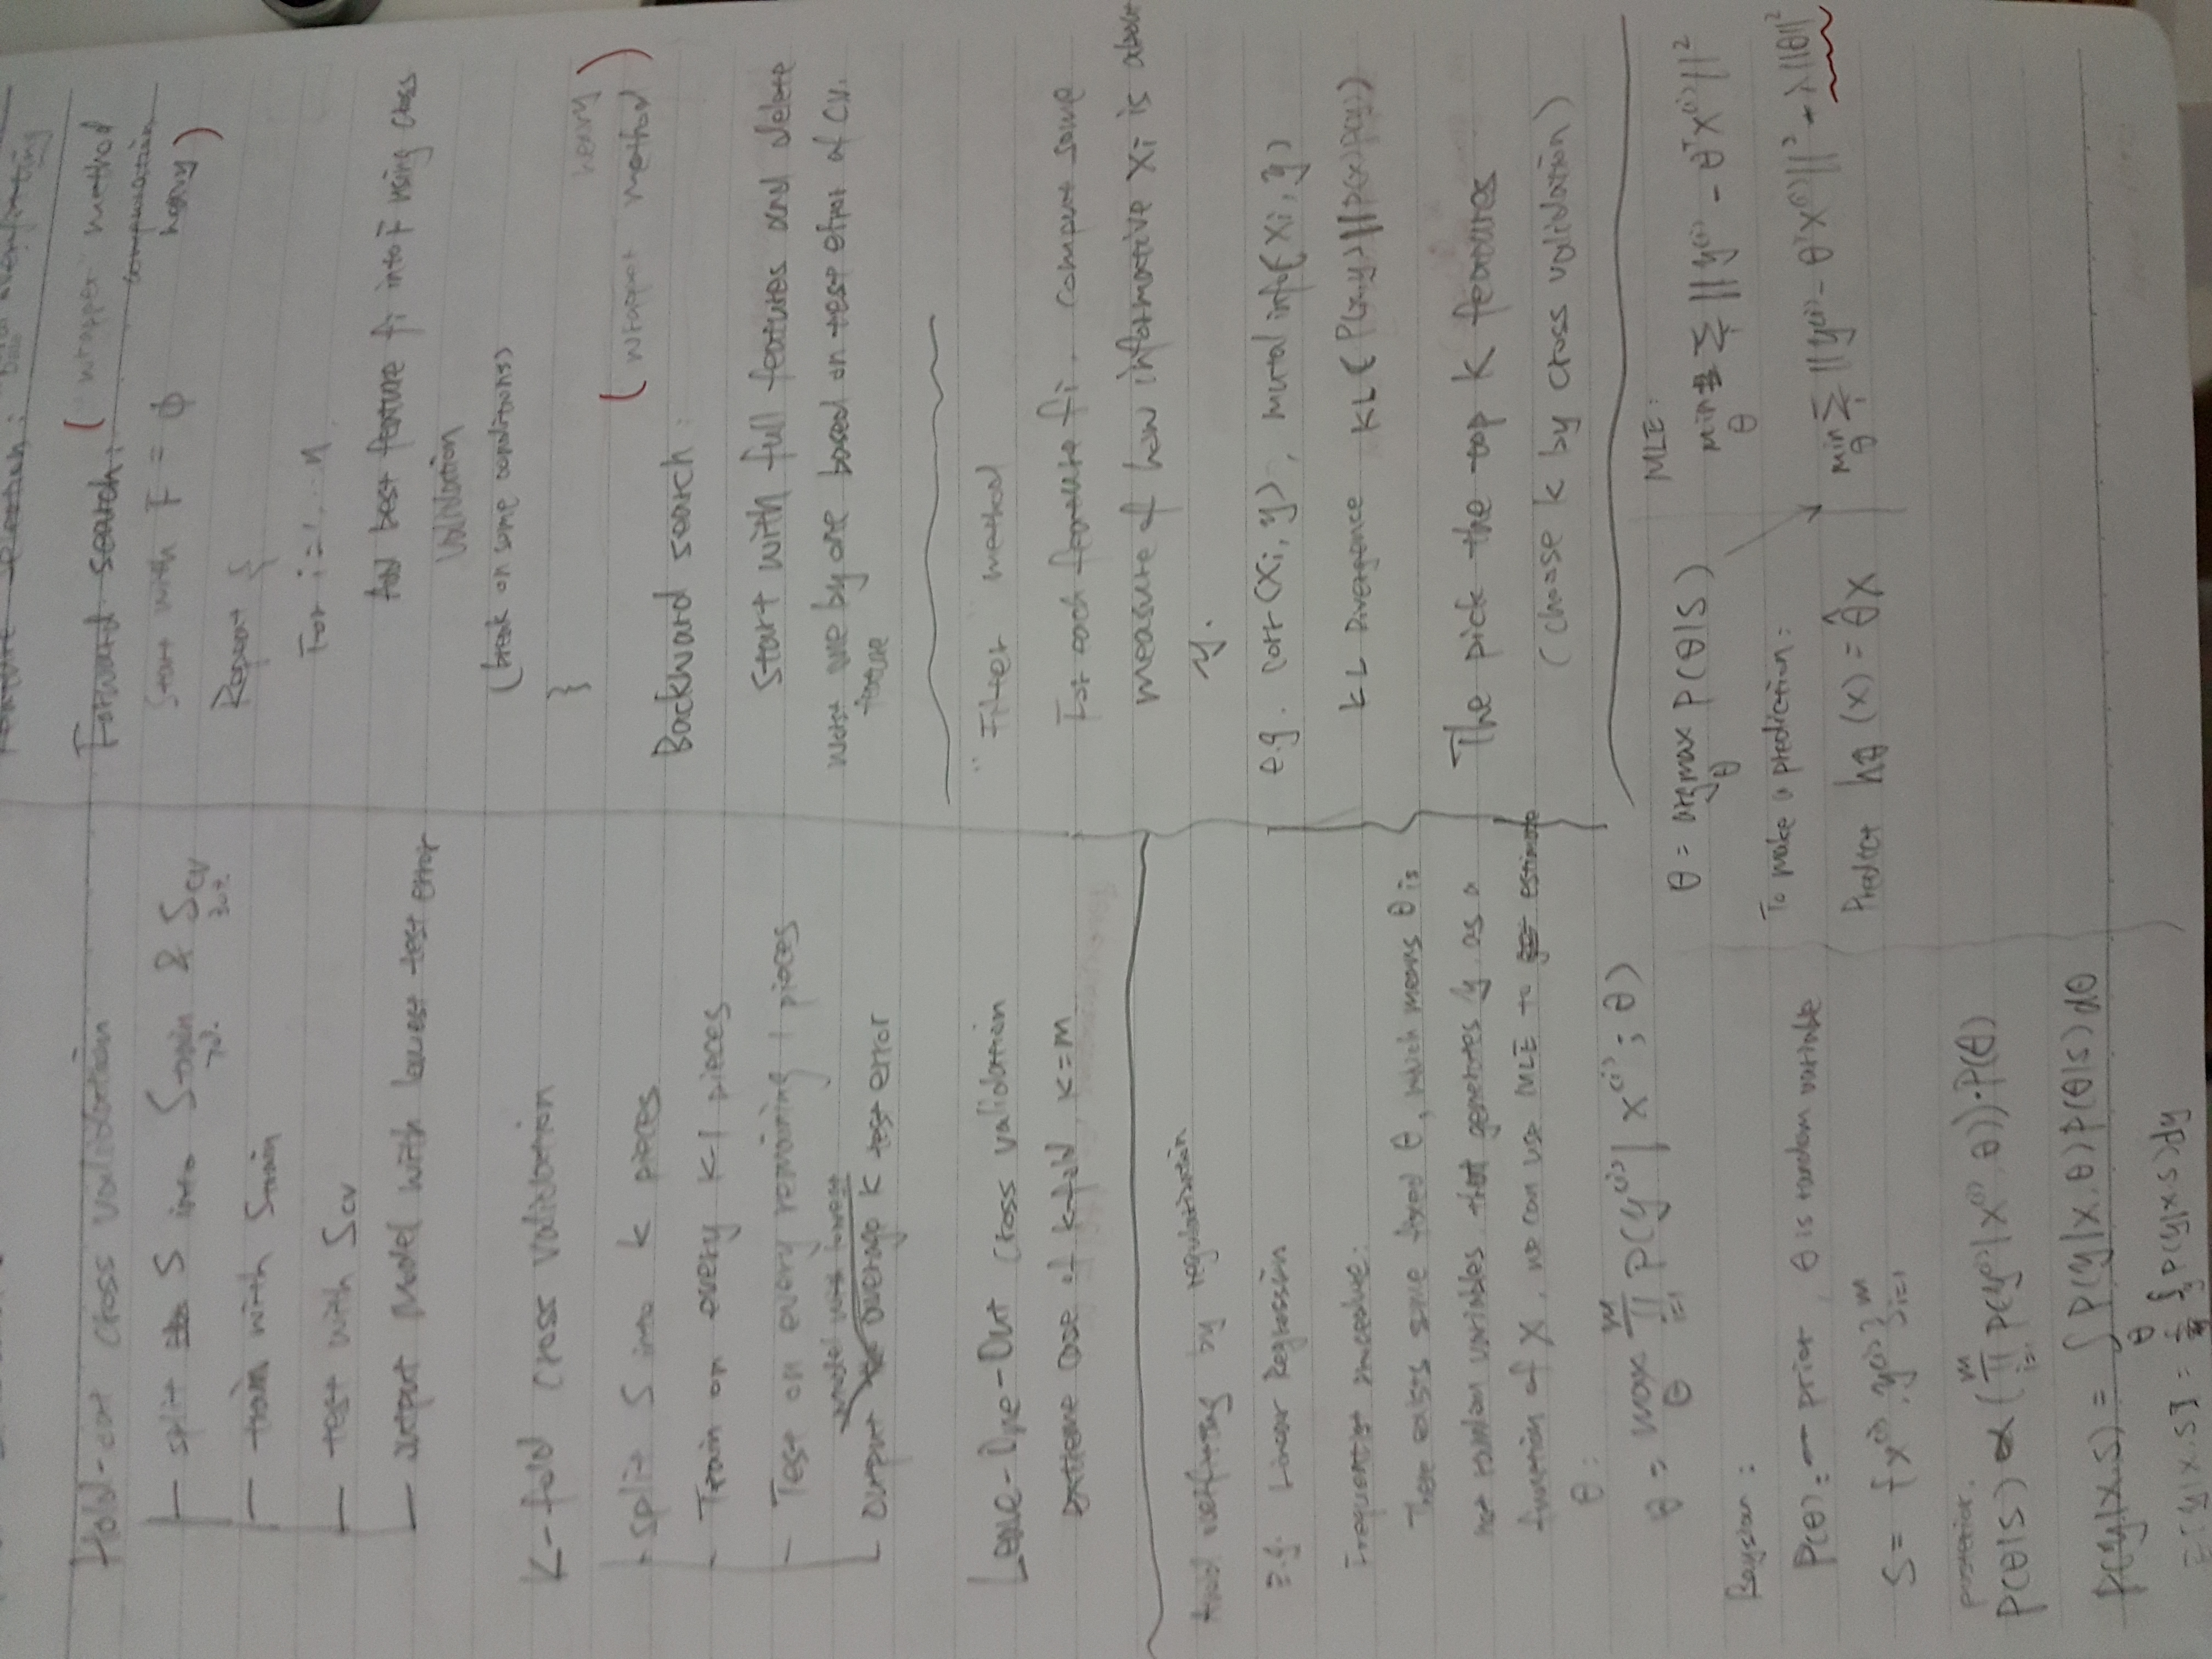 Hold-out cross validation
split S into Strain & Scv
70% 30%
train with Strain
test with Scv
output Model with lowest test error
K-fold cross validation
split S into k pieces
Train on every k-1 pieces
Test on every remaining 1 pieces
model with lowest
output average K test error
Leave-One-Out cross validation
extreme case of k-fold, k=m
Avoid overfitting by regularization
E.g. Linear Regression
Frequentist procedure:
There exists some fixed θ, which means θ is
not random variables that generates y as a
function of X, we can use MLE to estimate
θ:
θ = max_θ ∏_{i=1}^m P(y^(i) | x^(i); θ)
Baysian:
P(θ): prior, θ is random variable
S = {x^(i), y^(i)}_{i=1}^m
posterior.
P(θ|S) ∝ (∏_{i=1}^m P(y^(i)|x^(i), θ))·P(θ)
P(y|x,S) = ∫_θ P(y|x,θ)P(θ|S)dθ
E[y|x,S] = ∫_y y P(y|x,S)dy
Feature selection: overfitting
Forward search: ("wrapper" method
computation
heavy)
Start with F = ϕ
Repeat {
For i=1...n
Add best feature fi into F using cross
validation
(break on some conditions)
}
heavy
(wrapper method)
Backward search:
start with full features and delete
worst one by one based on test error of CV.
feature
"Filter" method
For each feature fi, compute some
measure of how informative xi is about
y.
e.g. corr(xi, y), mutal info(xi, y)
KL Divergence KL(P(x,y)||P(x)P(y))
The pick the top k features
(choose k by cross validation)
θ = argmax_θ P(θ|S)
To make a prediction:
Predict hθ(x) = θ̂x
MLE:
min_θ Σ_i ||y^(i) - θ^T x^(i)||^2
min_θ Σ_i ||y^(i) - θ^T x^(i)||^2 + λ||θ||^2